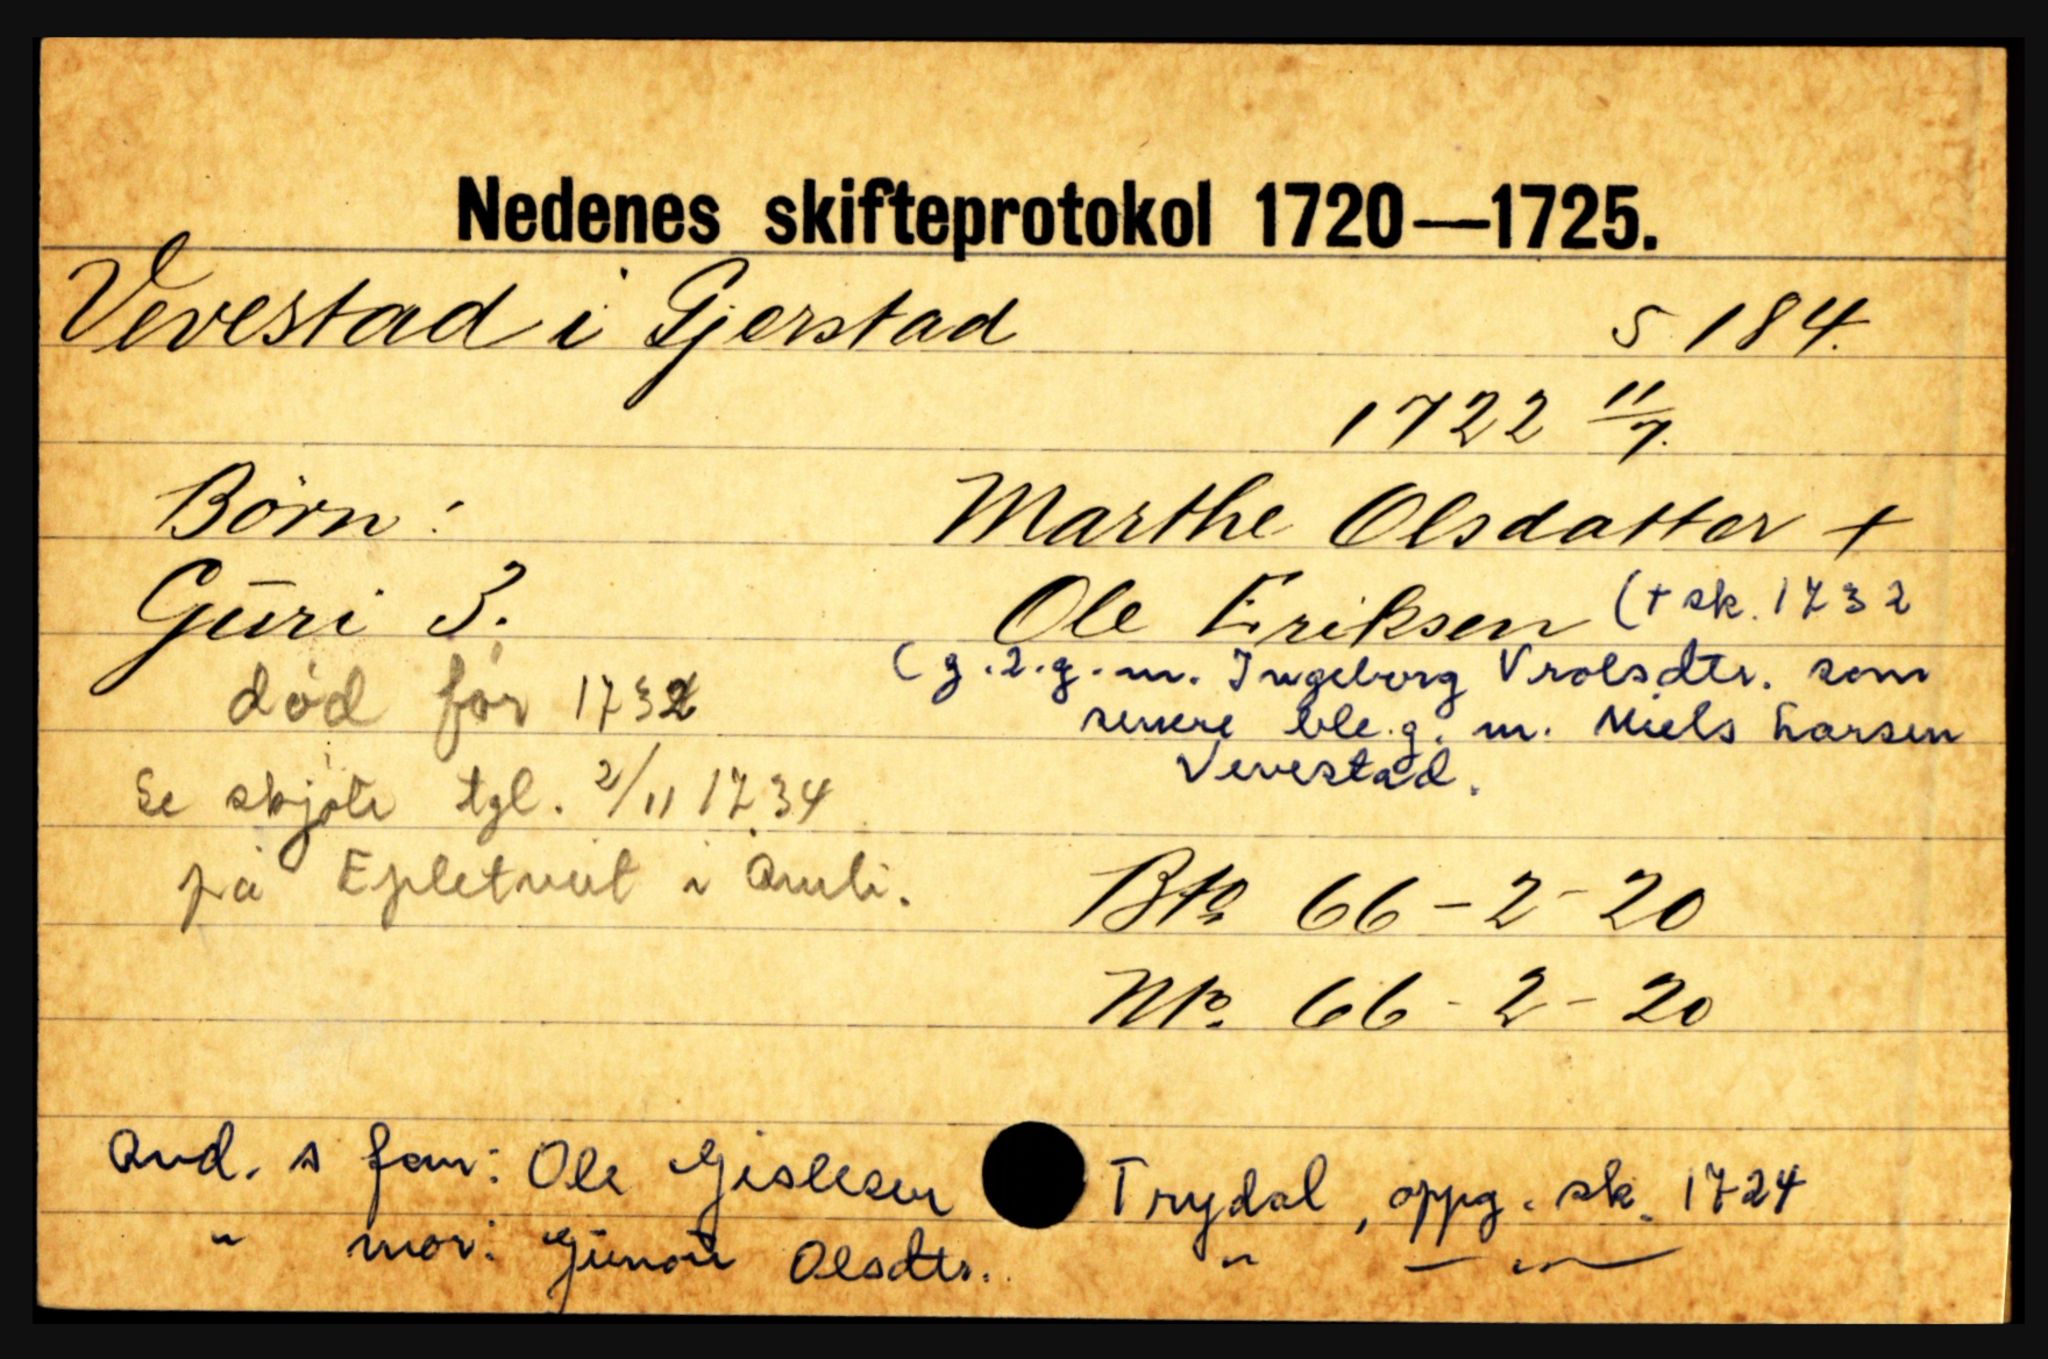 Nedenes skifteprotokol 1720—1725.
Vevestad i Gjerstad s 184.
1722 11/7.
Børn: Marthe Olsdatter +
Guri 3. Ole Eriksen (+ sk. 1732
død før 1732 (g. 2. g. m. Ingeborg Vrolsdtr. som
senere ble g. m. Niels Larsen
Se skjøte tgl. 2/11 1734 Vevestad.
på Epletveit i Åmli. Btø 66-2-20
Ntø. 66-2-20
Avd. s far: Ole Gislesen Trydal, oppg. sk. 1724
" mor: Olsdtr. " — " —